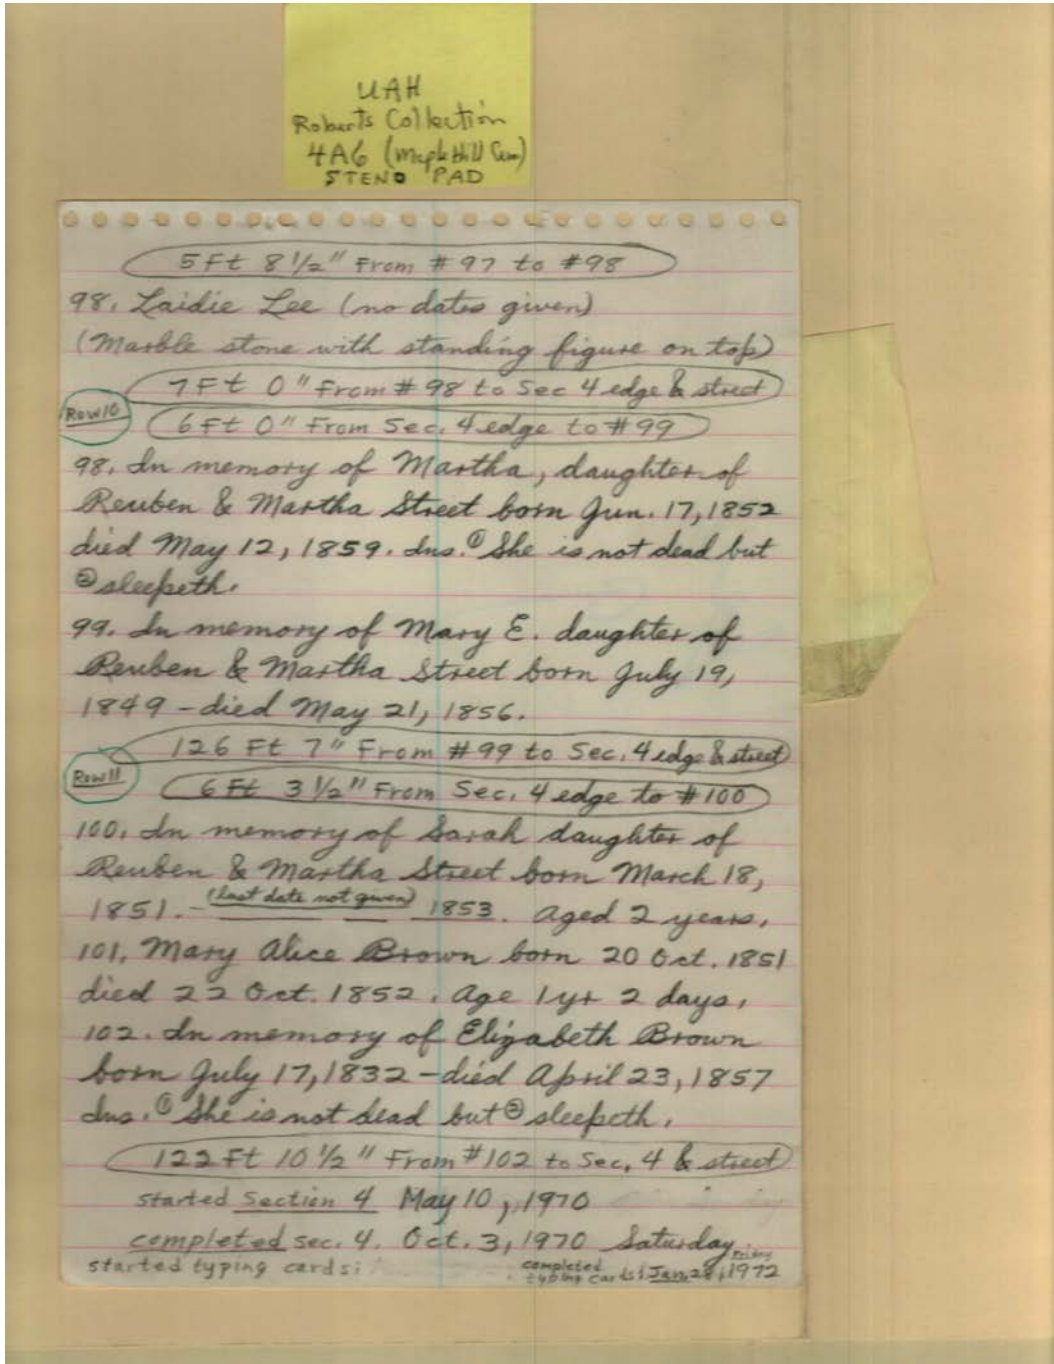 UAH
Roberts Collection
4A6 (Maple Hill Cem)
STENO PAD
5 Ft 8 1/2" From #97 to #98
98. Zaidie Lee (no dates given)
(Marble stone with standing figure on top)
7 Ft 0" From #98 to Sec 4 edge & street
Row 10
6 Ft 0" From Sec. 4 edge to #99
98. In memory of Martha, daughter of
Reuben & Martha Street born Jun. 17, 1852
died May 12, 1859. Ins. ① She is not dead but
② sleepeth.
99. In memory of Mary E. daughter of
Reuben & Martha Street born July 19,
1849 - died May 21, 1856.
126 Ft 7" From #99 to Sec. 4 edge & street
Row 11
6 Ft 3 1/2" From Sec. 4 edge to #100
100. In memory of Sarah daughter of
Reuben & Martha Street born March 18,
1851. - (last date not given) 1853. Aged 2 years.
101. Mary Alice Brown born 20 Oct. 1851
died 22 Oct. 1852. Age 1 yr 2 days.
102. In memory of Elizabeth Brown
born July 17, 1832 - died April 23, 1857
Ins. ① She is not dead but ② sleepeth.
122 Ft 10 1/2" From #102 to Sec. 4 & street
started Section 4 May 10, 1970
completed sec. 4. Oct. 3, 1970 Saturday
started typing cards:
completed Friday
typing cards: Jan. 28, 1972